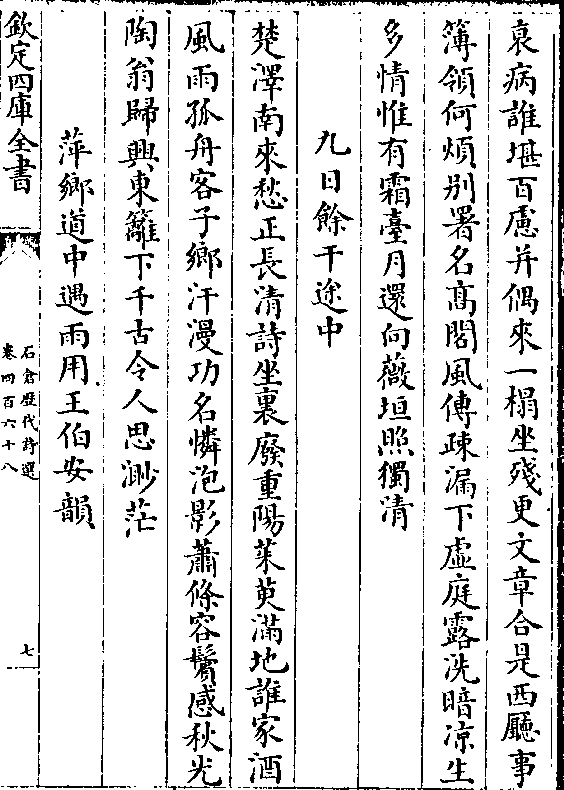 衰病誰堪百慮并偶來一榻坐殘更文章合是西廳事
簿領何煩别署名髙閣風傳疎漏下虚庭露洗暗凉生
多情惟有霜臺月還向薇垣照獨清
九日餘干途中
楚澤南來愁正長清詩坐裏廢重陽茱萸滿地誰家酒
風雨孤舟客子鄉汗漫功名憐泡影蕭條容鬢感秋光
陶翁歸興東籬下千古令人思渺茫
萍鄉道中遇雨用王伯安韻
欽定四庫全書
石倉歴代詩選
卷四百六十八
七